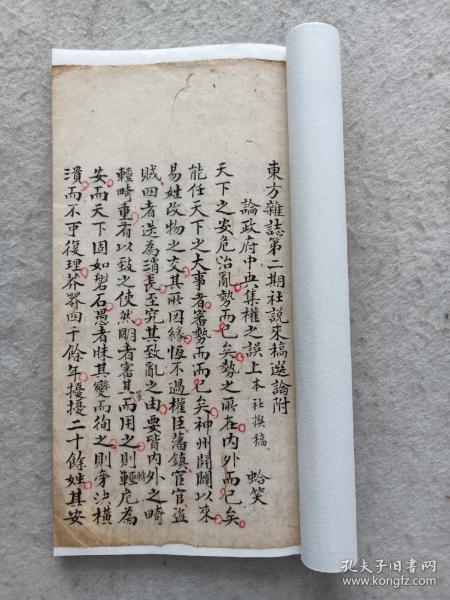 東方雜誌第二期社說來稿選論附
論政府中央集權之誤上 本社撰稿 蛤笑
天下之安危治亂勢而已矣勢之所在內外而已矣
能任天下之大事者審勢而而已矣神州開闢以來
易姓改物之交其所因緣恆不過權臣藩鎮宦官盜
賊四者迭為消長至究其致亂之由要皆內外之畸
輕畸重有以致之使然明者審其而用之則轉危為
安而天下固如磐石愚者昧其變而徇之則旁決橫
潰而不可復理莽莽四千餘年擾擾二十餘姓其安
孔夫子旧书网
www.kongfz.com